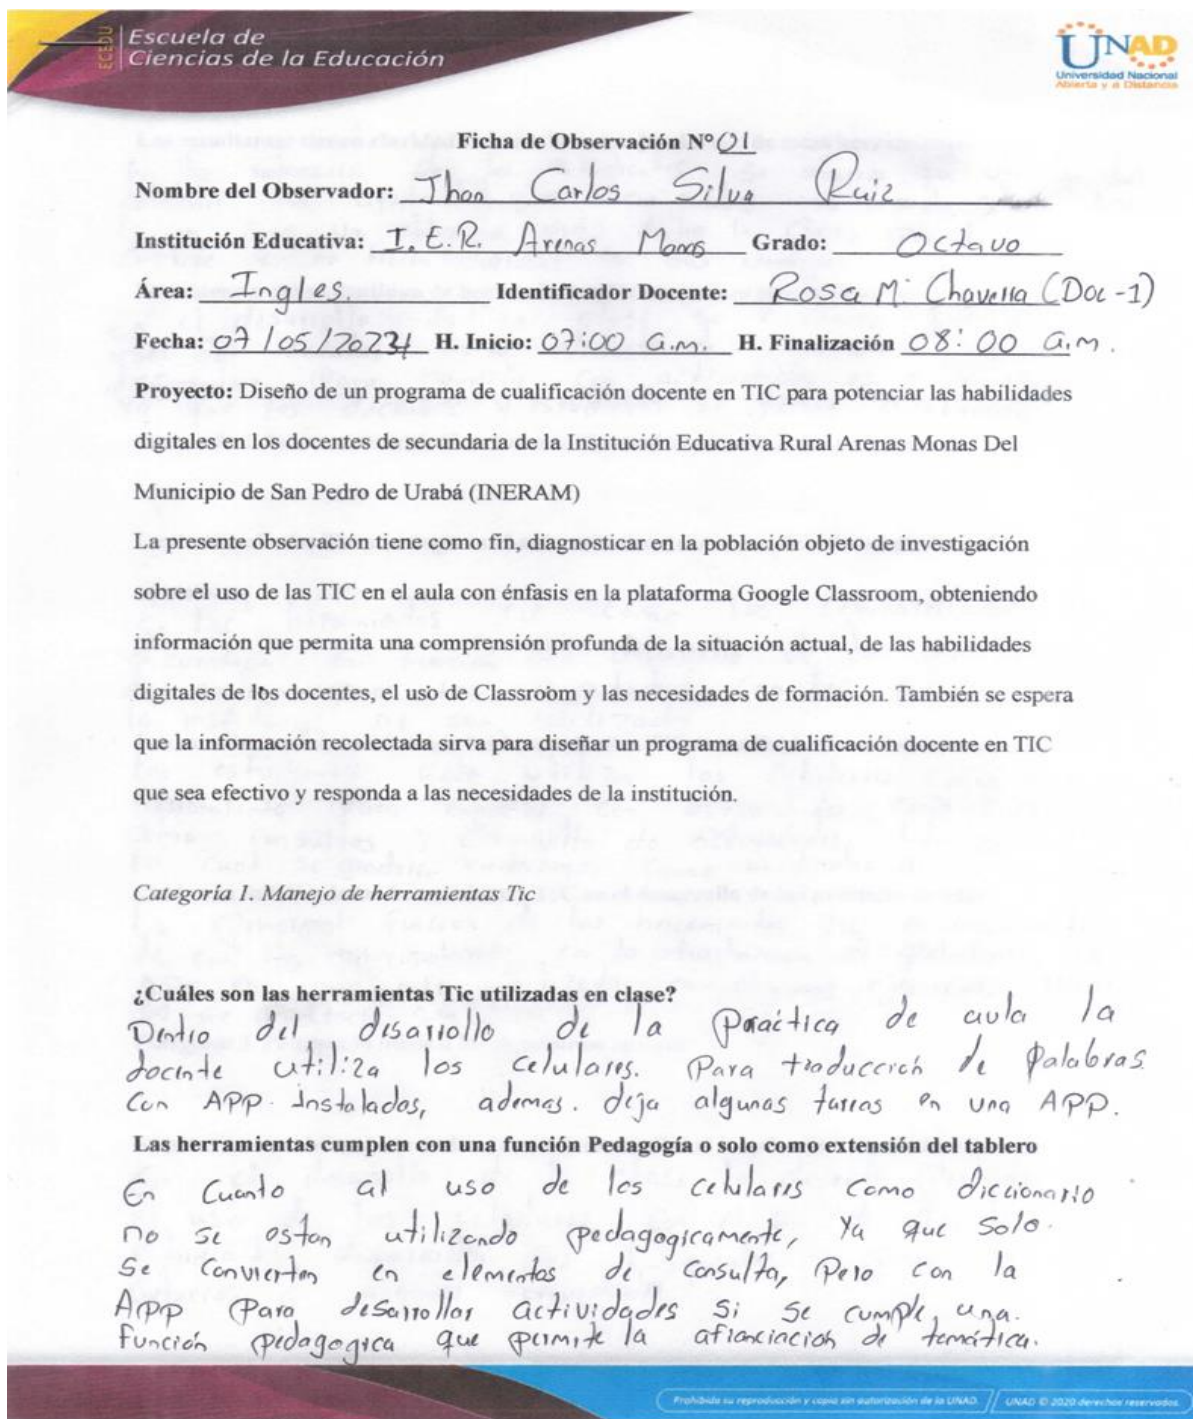 ECEDU
Escuela de
Ciencias de la Educación
UNAD
Universidad Nacional
Abierta y a Distancia
Ficha de Observación N° 01
Nombre del Observador: Jhon Carlos Silva Ruiz
Institución Educativa: I.E.R. Arenas Monas Grado: Octavo
Área: Ingles. Identificador Docente: Rosa M. Chaverra (Doc-1)
Fecha: 07/05/2024 H. Inicio: 07:00 a.m. H. Finalización 08:00 a.m.
Proyecto: Diseño de un programa de cualificación docente en TIC para potenciar las habilidades
digitales en los docentes de secundaria de la Institución Educativa Rural Arenas Monas Del
Municipio de San Pedro de Urabá (INERAM)
La presente observación tiene como fin, diagnosticar en la población objeto de investigación
sobre el uso de las TIC en el aula con énfasis en la plataforma Google Classroom, obteniendo
información que permita una comprensión profunda de la situación actual, de las habilidades
digitales de los docentes, el uso de Classroom y las necesidades de formación. También se espera
que la información recolectada sirva para diseñar un programa de cualificación docente en TIC
que sea efectivo y responda a las necesidades de la institución.
Categoría 1. Manejo de herramientas Tic
¿Cuáles son las herramientas Tic utilizadas en clase?
Dentro del desarrollo de la practica de aula la
docente utiliza los celulares. Para traducción de palabras
con APP. Instalados, ademas. deja algunas tareas en una APP.
Las herramientas cumplen con una función Pedagogía o solo como extensión del tablero
En Cuanto al uso de los celulares como diccionario
no se estan utilizando pedagogicamente, Ya que solo.
Se convierten en elementos de consulta, Pero con la
APP Para desarrollar actividades si se cumple una.
función pedagogica que permite la afianciacion de temática.
Prohibida su reproducción y copia sin autorización de la UNAD. // UNAD © 2020 derechos reservados.